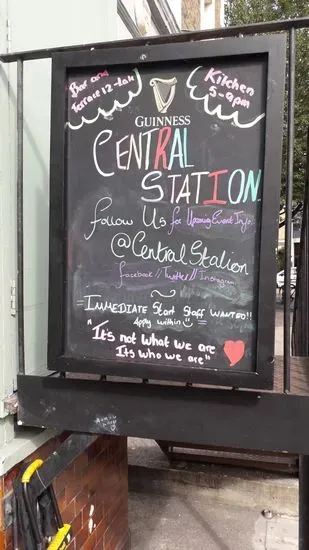 Bar and
Terrace 12-late
Kitchen
5-9pm
GUINNESS
CENTRAL
STATION
follow Us for Upcoming Event Info
@CentralStation
facebook // Twitter // Instagram
~
= IMMEDIATE Start Staff WANTED!! =
Apply within
"It's not what we are
It's who we are"